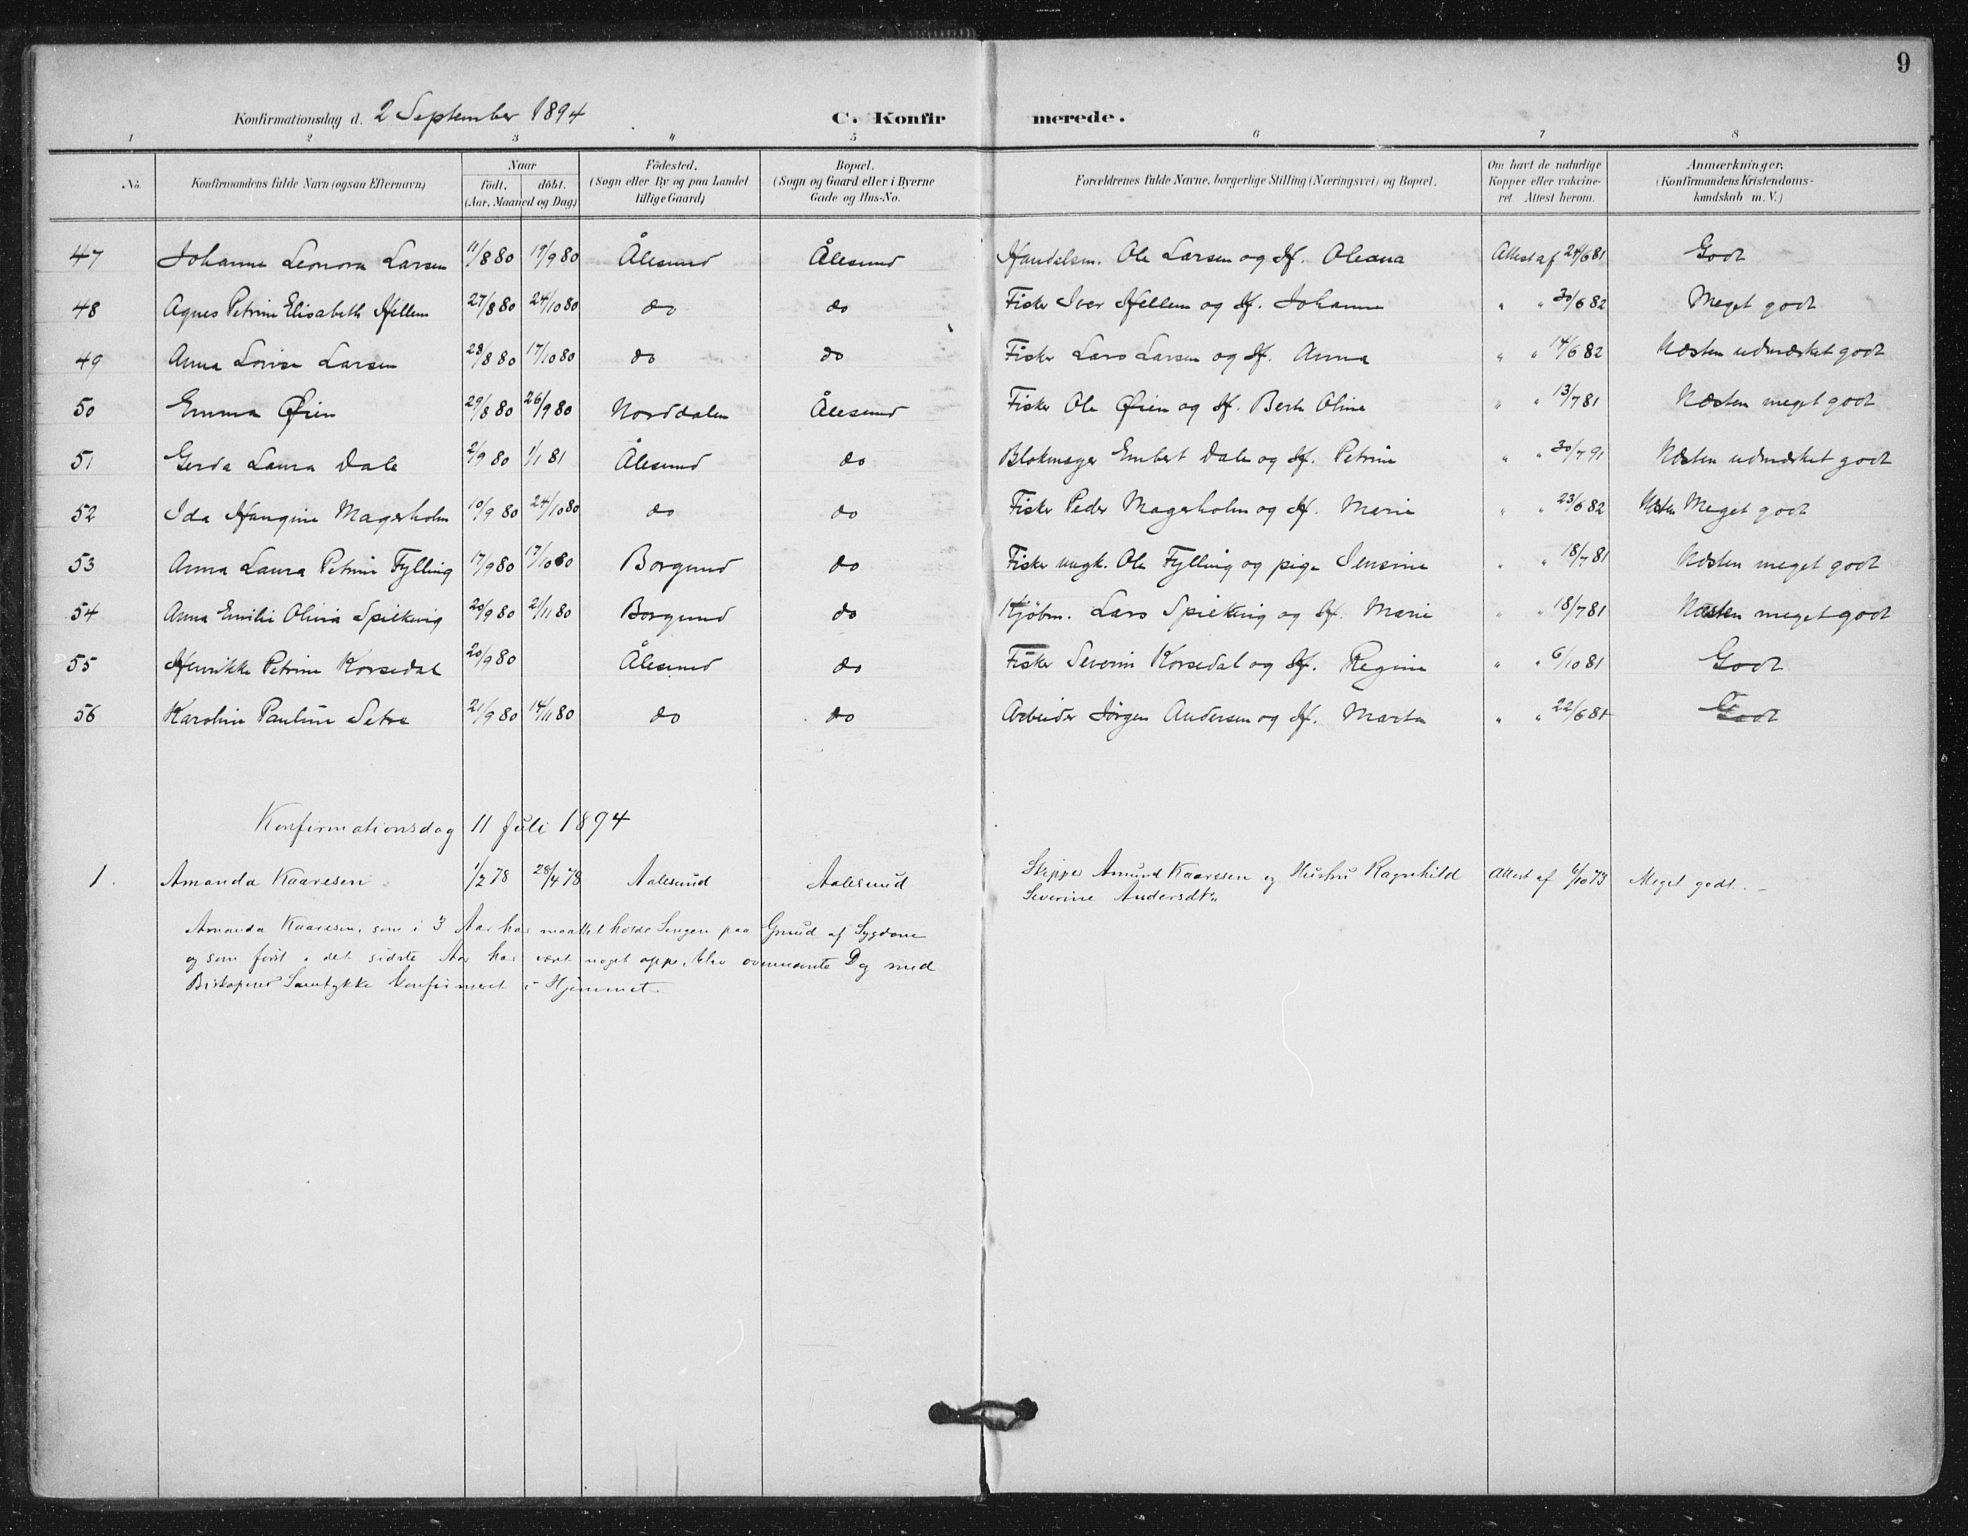 9
Konfirmationsdag d. 2 September 1894 C. Konfirmerede.
1 2 3 4 5 6 7 8
No. Konfirmandens fulde Navn (ogsaa Efternavn) Naar födt. döbt. (Aar, Maaned og Dag) Födested. (Sogn eller By og paa Landet tillige Gaard) Bopæl. (Sogn og Gaard eller i Byerne Gade og Hus-No. Forældrenes fulde Navne, borgerlige Stilling (Næringsvei) og Bopæl. Om havt de naturlige Kopper eller vakcineret Attest herom. Anmærkninger. (Konfirmandens Kristendomskundskab m. V.)
47 Johanne Leonora Larsen 11/8 80 19/9 80 Ålesund Ålesund Handelsm. Ole Larsen og Hf. Oleana Attest af 24/6 81 Godt
48 Agnes Petrine Elisabeth Hellem 27/8 80 24/10 80 do do Fisker Iver Hellem og Hf. Johanne " " 30/6 82 Meget godt
49 Anna Lovise Larsen 28/8 80 17/10 80 do do Fisker Lars Larsen og Hf. Anna " " 14/6 82 Næsten udmærket godt
50 Emma Øien 29/8 80 26/9 80 Norddalen Ålesund Fisker Ole Øien og Hf. Berte Oline " " 13/7 81 Næsten meget godt
51 Gerda Laura Dale 2/9 80 1/1 81 Ålesund do Blokmager Embert Dale og Hf. Petrine " " 30/7 91 Næsten udmærket godt
52 Ida Hangine Magerholm 10/9 80 24/10 80 do do Fisker Peder Magerholm og Hf. Marie " " 23/6 82 Næsten Meget godt
53 Anna Laura Petrine Fylling 17/9 80 17/10 80 Borgund do Fisker ungk. Ole Fylling og pige Jensine " " 18/7 81 Næsten meget godt
54 Anna Emilie Olivia Spilkevig 20/9 80 21/11 80 Borgund do Kjøbm. Lars Spilkevig og Hf. Marie " " 18/7 81 Næsten meget godt
55 Henrikke Petrine Korsedal 20/9 80 Ålesund do Fisker Severin Korsedal og Hf. Regine " " 6/10 81 Godt
56 Karoline Pauline Setre 21/9 80 14/11 80 do do Arbeider Jørgen Andersen og Hf. Marta " " 22/6 81 Godt
Konfirmationsdag 11 Juli 1894
1. Amanda Kaaresen 1/2 78 28/4 78 Aalesund Aalesund Skipper Amund Kaaresen og Hustru Ragnhild Attest af 73 Meget godt.
Severine Andersdt.
Amanda Kaaresen, som i 3 Aar har maattet holde Sengen paa Grund af Sygdom
og som först i det sidste Aar har været noget oppe, blev ovennævnte Dag med
Biskopens Samtykke konfirmeret i Hjemmet.